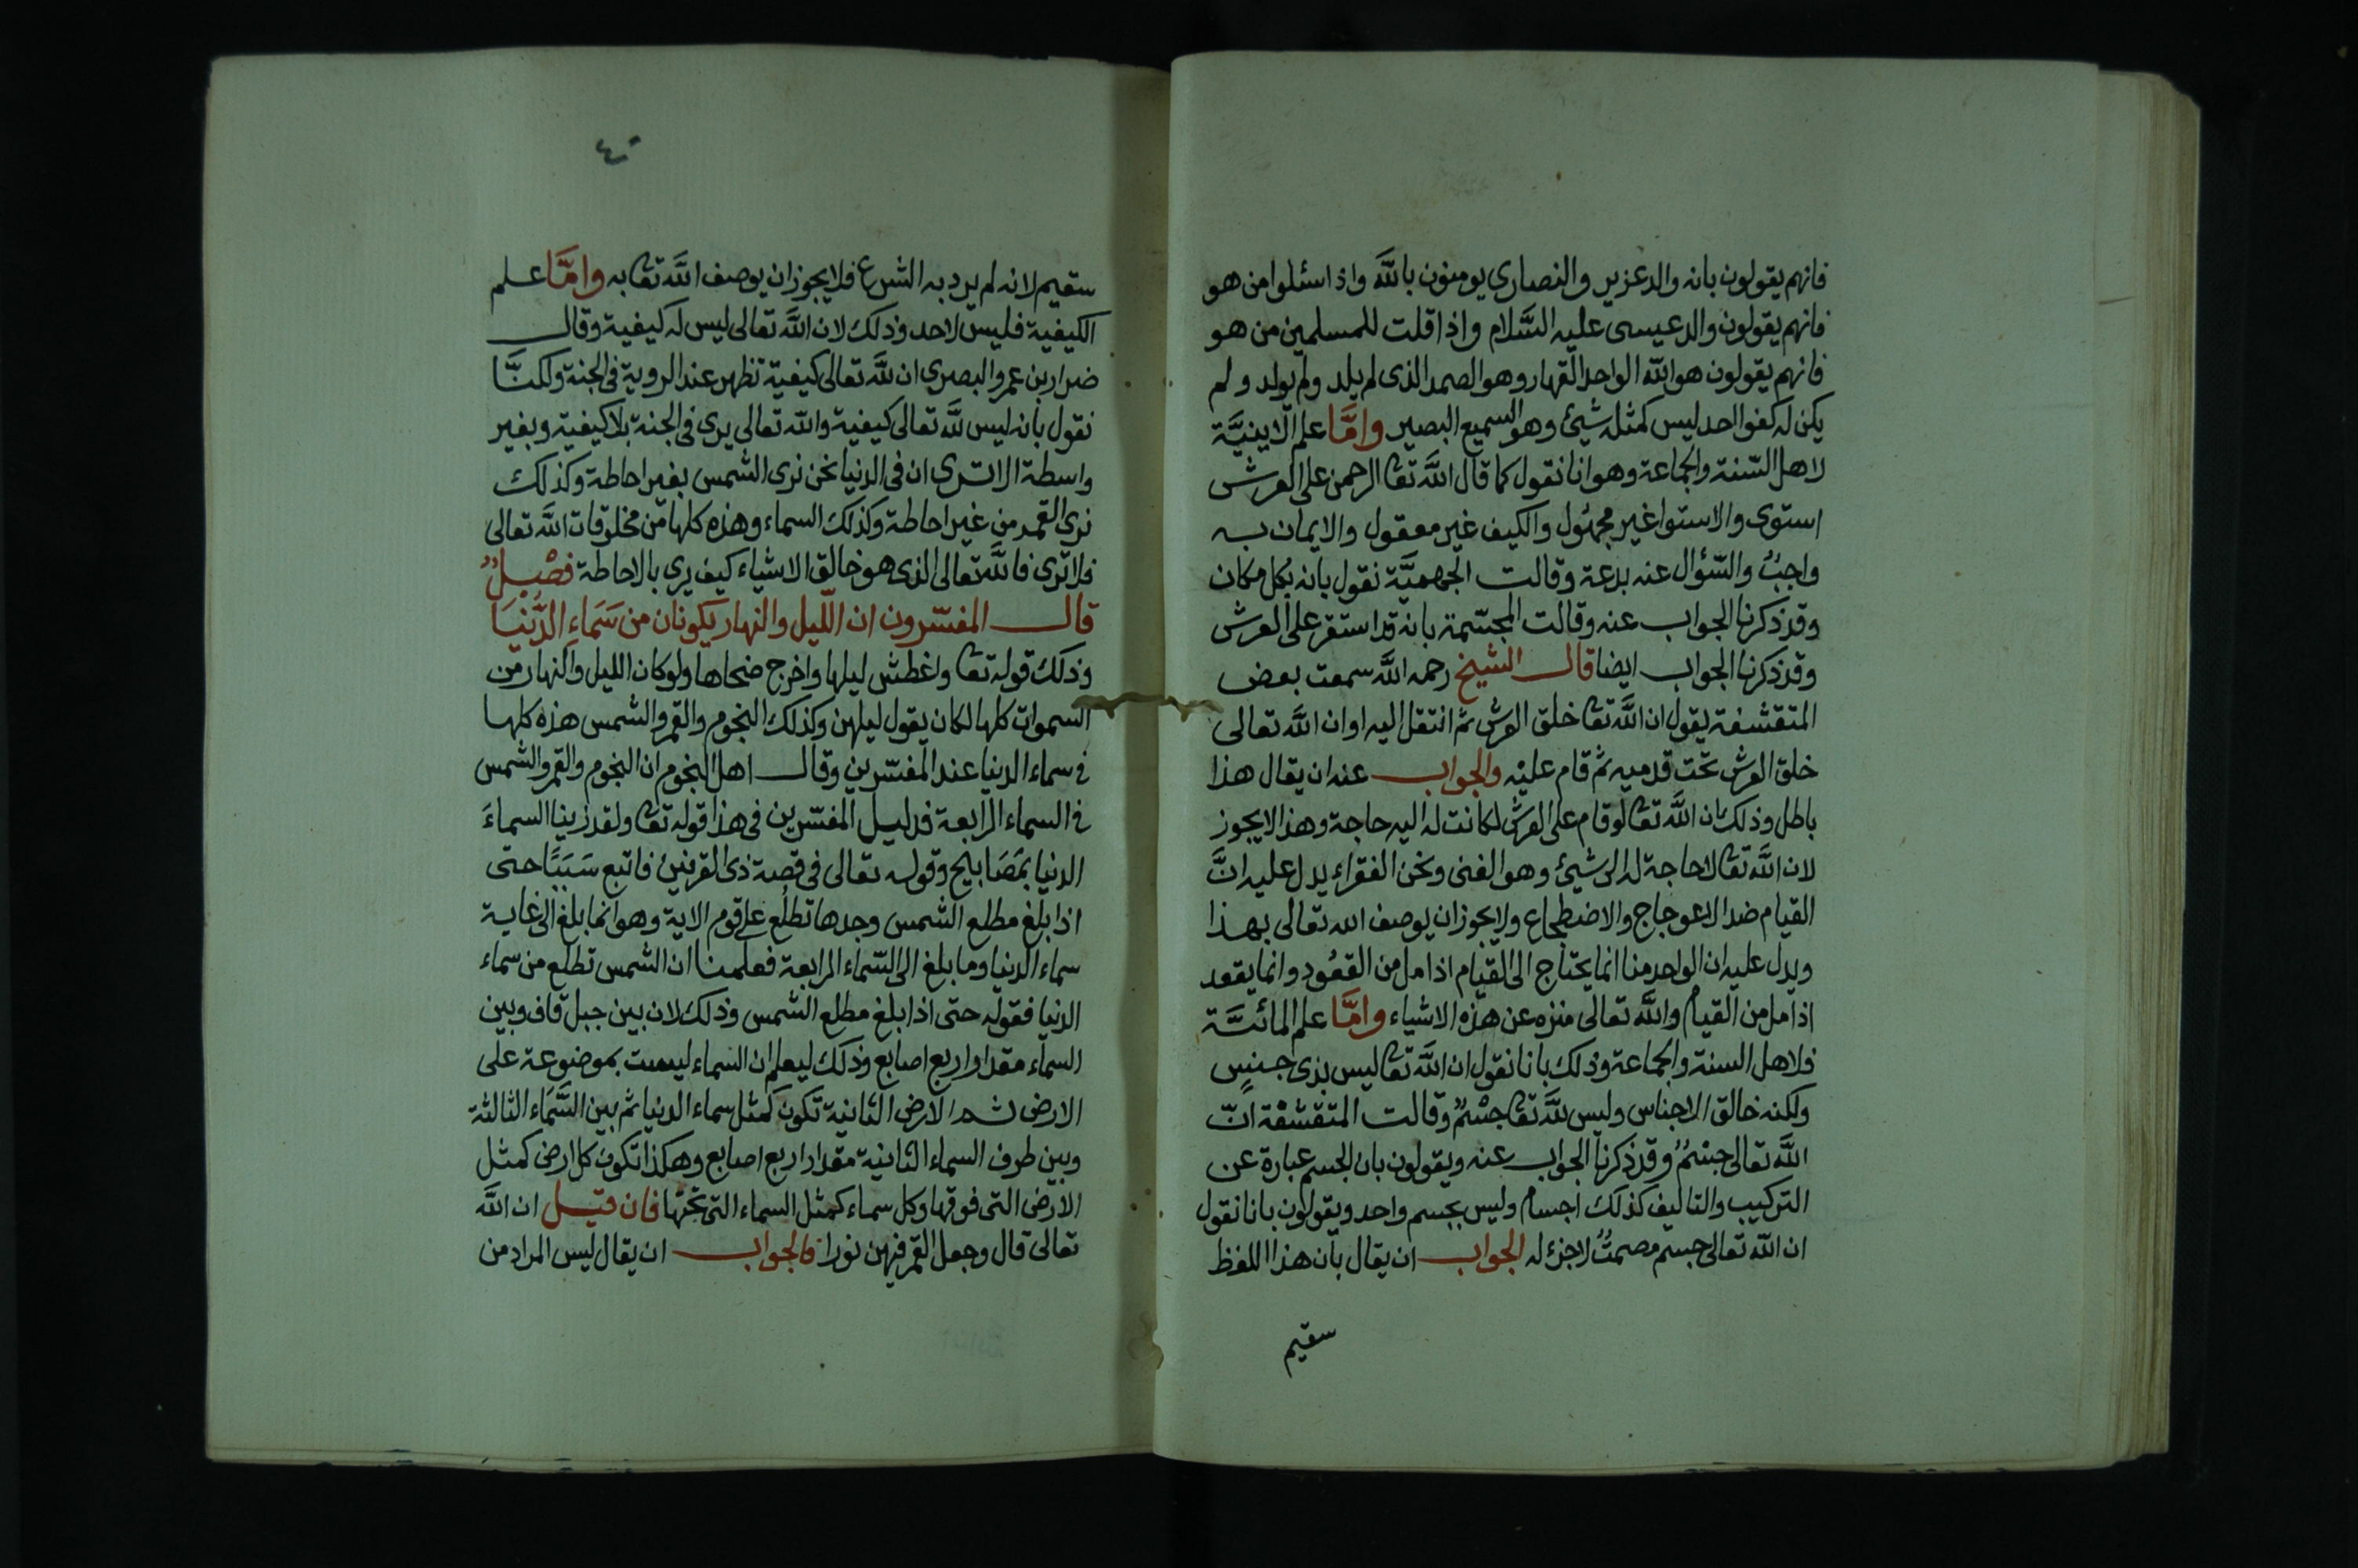 فانهم يقولون بانه والد عزير والنصارى يومنون بالله واذا سئلوا من هو
فانهم يقولون والد عيسى عليه السَّلام واذا قلت للمسلمين من هو
فانهم يقولون هو الله الواحد القهار وهو الصمد الذى لم يلد ولم يولد ولم
يكن له كفوا احد ليس كمثله شيئ وهو السميع البصير وامَّا علم الاينيَّة
لاهل السّنة والجماعة وهو انا نقول كما قال الله تعا الرحمن على العرش
استوى والاستوا غير مجهُول والكيف غير معقول والايمان به
واجبٌ والسّؤال عنه بدعة وقالت الجهميَّة نقول بانه بكل مكان
وقد ذكرنا الجواب عنه وقالت المجسّمة بانه قد استقر على العرش
وقد ذكرنا الجواب ايضا قال الشيخ رحمه الله سمعت بعض
المتقشفة يقول ان الله تعا خلق العرش ثم انتقل اليه او ان الله تعالى
خلق العرش تحت قدميه ثم قام عليْه والجواب عنه ان يقال هذا
باطل وذلك ان الله تعا لو قام على العرش لكانت له اليه حاجة وهذا لايجوز
لان الله تعا لا حاجة له الى شيئ وهو الغنى ونحن الفقراء يدل عليه انَّ
القيام ضد الاعوجاج والاضطجاع ولايجوز ان يوصف الله تعالى بهذا
ويدل عليه ان الواحد منا انما يحتاج الى القيام اذا مل من القعُود وانما يقعد
اذا مل من القيام والله تعالى منزه عن هذه الاشياء وامَّا علم المائيَّة
فلاهل السنة والجماعة وذلك بانا نقول ان الله تعا ليس بذى جنسٍ
ولكنه خالق الاجناس وليس لله تعا جسْمٌ وقالت المتقشفة انّ
الله تعالى جسْمٌ وقد ذكرنا الجواب عنه ويقولون بان الجسم عبارة عن
التركيب والتاليف كذلك اجسام وليس بجسم واحد ويقولون بانا نقول
ان الله تعالى جسم مصمتٌ لاجزء له الجواب ان يقال بان هذا اللفظ
سقيم
٤٠
سقيم لانه لم يرد به الشرع فلايجوز ان يوصف الله تعا به وامَّا علم
الكيفية فليس لاحد وذلك لان الله تعالى ليس له كيفية وقال
ضرار بن عمرو البصرى ان لله تعالى كيفية تظهر عند الروية فى الجنة ولكنَّا
نقول بانه ليس لله تعالى كيفية والله تعالى يرى فى الجنة بلا كيفية وبغير
واسطة الا ترى ان فى الدنيا نحن نرى الشمس بغير احاطة وكذلك
نرى القمر من غير احاطة وكذلك السماء وهذه كلها من مخلوقات الله تعالى
فلا ترى فالله تعالى الذى هو خالق الاشياء كيف يرى بالاحاطة فصْلٌ
قال المفسّرون ان اللّيل والنهار يكونان من سَمَاء الدُّنيَا
وذلك قوله تعا واغطش ليلها واخرج ضحاها ولو كان الليل والنهار من
السموات كلها لكان يقول ليلهن وكذلك النجوم والقمر والشمس هذه كلها
فى سماء الدنيا عند المفسّرين وقال اهل النجوم ان النجوم والقمر والشمس
فى السماء الرابعة فدليل المفسّرين فى هذا قوله تعا ولقد زينا السماءَ
الدنيا بمَصَابيح وقوله تعالى فى قصة ذى القرنين فاتبع سَبَبًا حتى
اذا بلغ مطلع الشمس وجدها تطلُع على قوم الاية وهو انما بلغ الى غاية
سماء الدنيا وما بلغ الى السّماء الرابعة فعلمنا ان الشمس تطلع من سماء
الدنيا فقوله حتى اذا بلغ مطلع الشمس وذلك لان بين جبل قاف وبين
السماء مقدار اربع اصابع وذلك ليعلم ان السماء ليست بموضوعة على
الارض ثم الارض الثانية تكون كمثل سماء الدنيا ثم بين السَّمَاء الثالثة
وبين طرف السماء الثانية مقدار اربع اصابع وهكذا تكون كل ارض كمثل
الارض التى فوقها وكل سماء كمثل السماء التى تحتها فان قيل ان الله
تعالى قال وجعل القمر فيهن نورا فالجواب ان يقال ليس المراد من